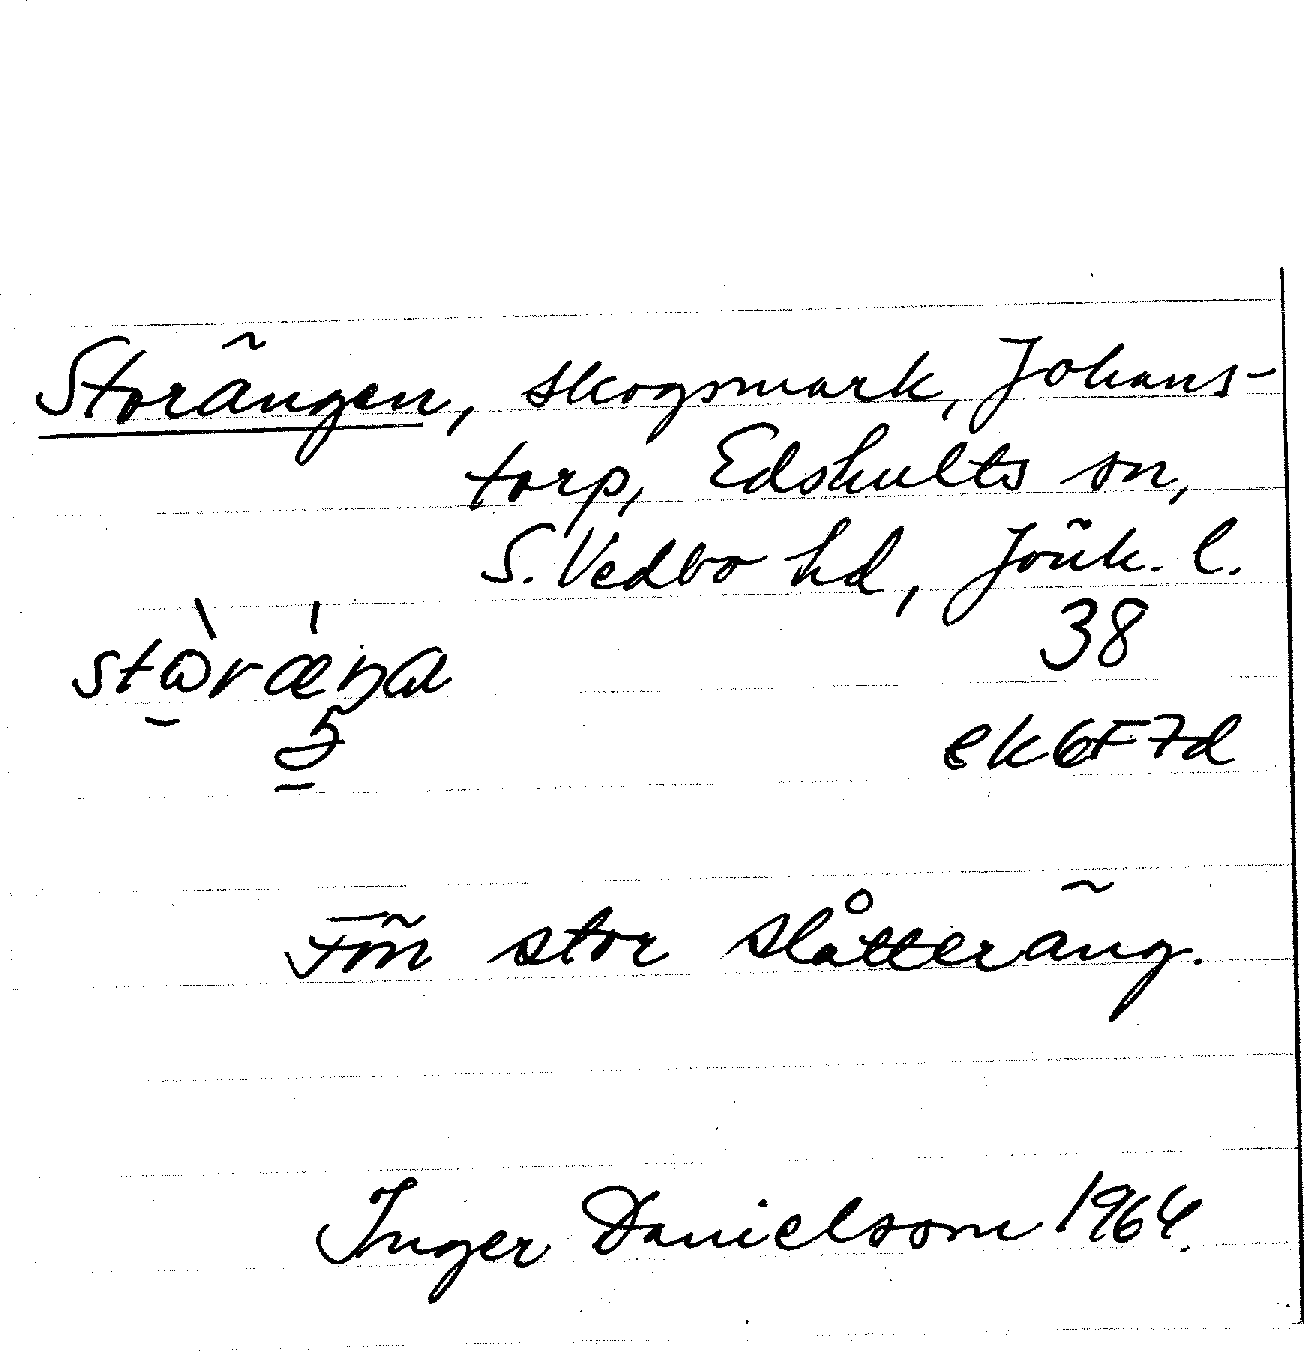 Storängen, skogsmark, Johans-
torp, Edshults sn,
S. Vedbo hd, Jönk. l.
38
ek6F7d
Förr stor slåtteräng.
Inger Danielsson 1964.